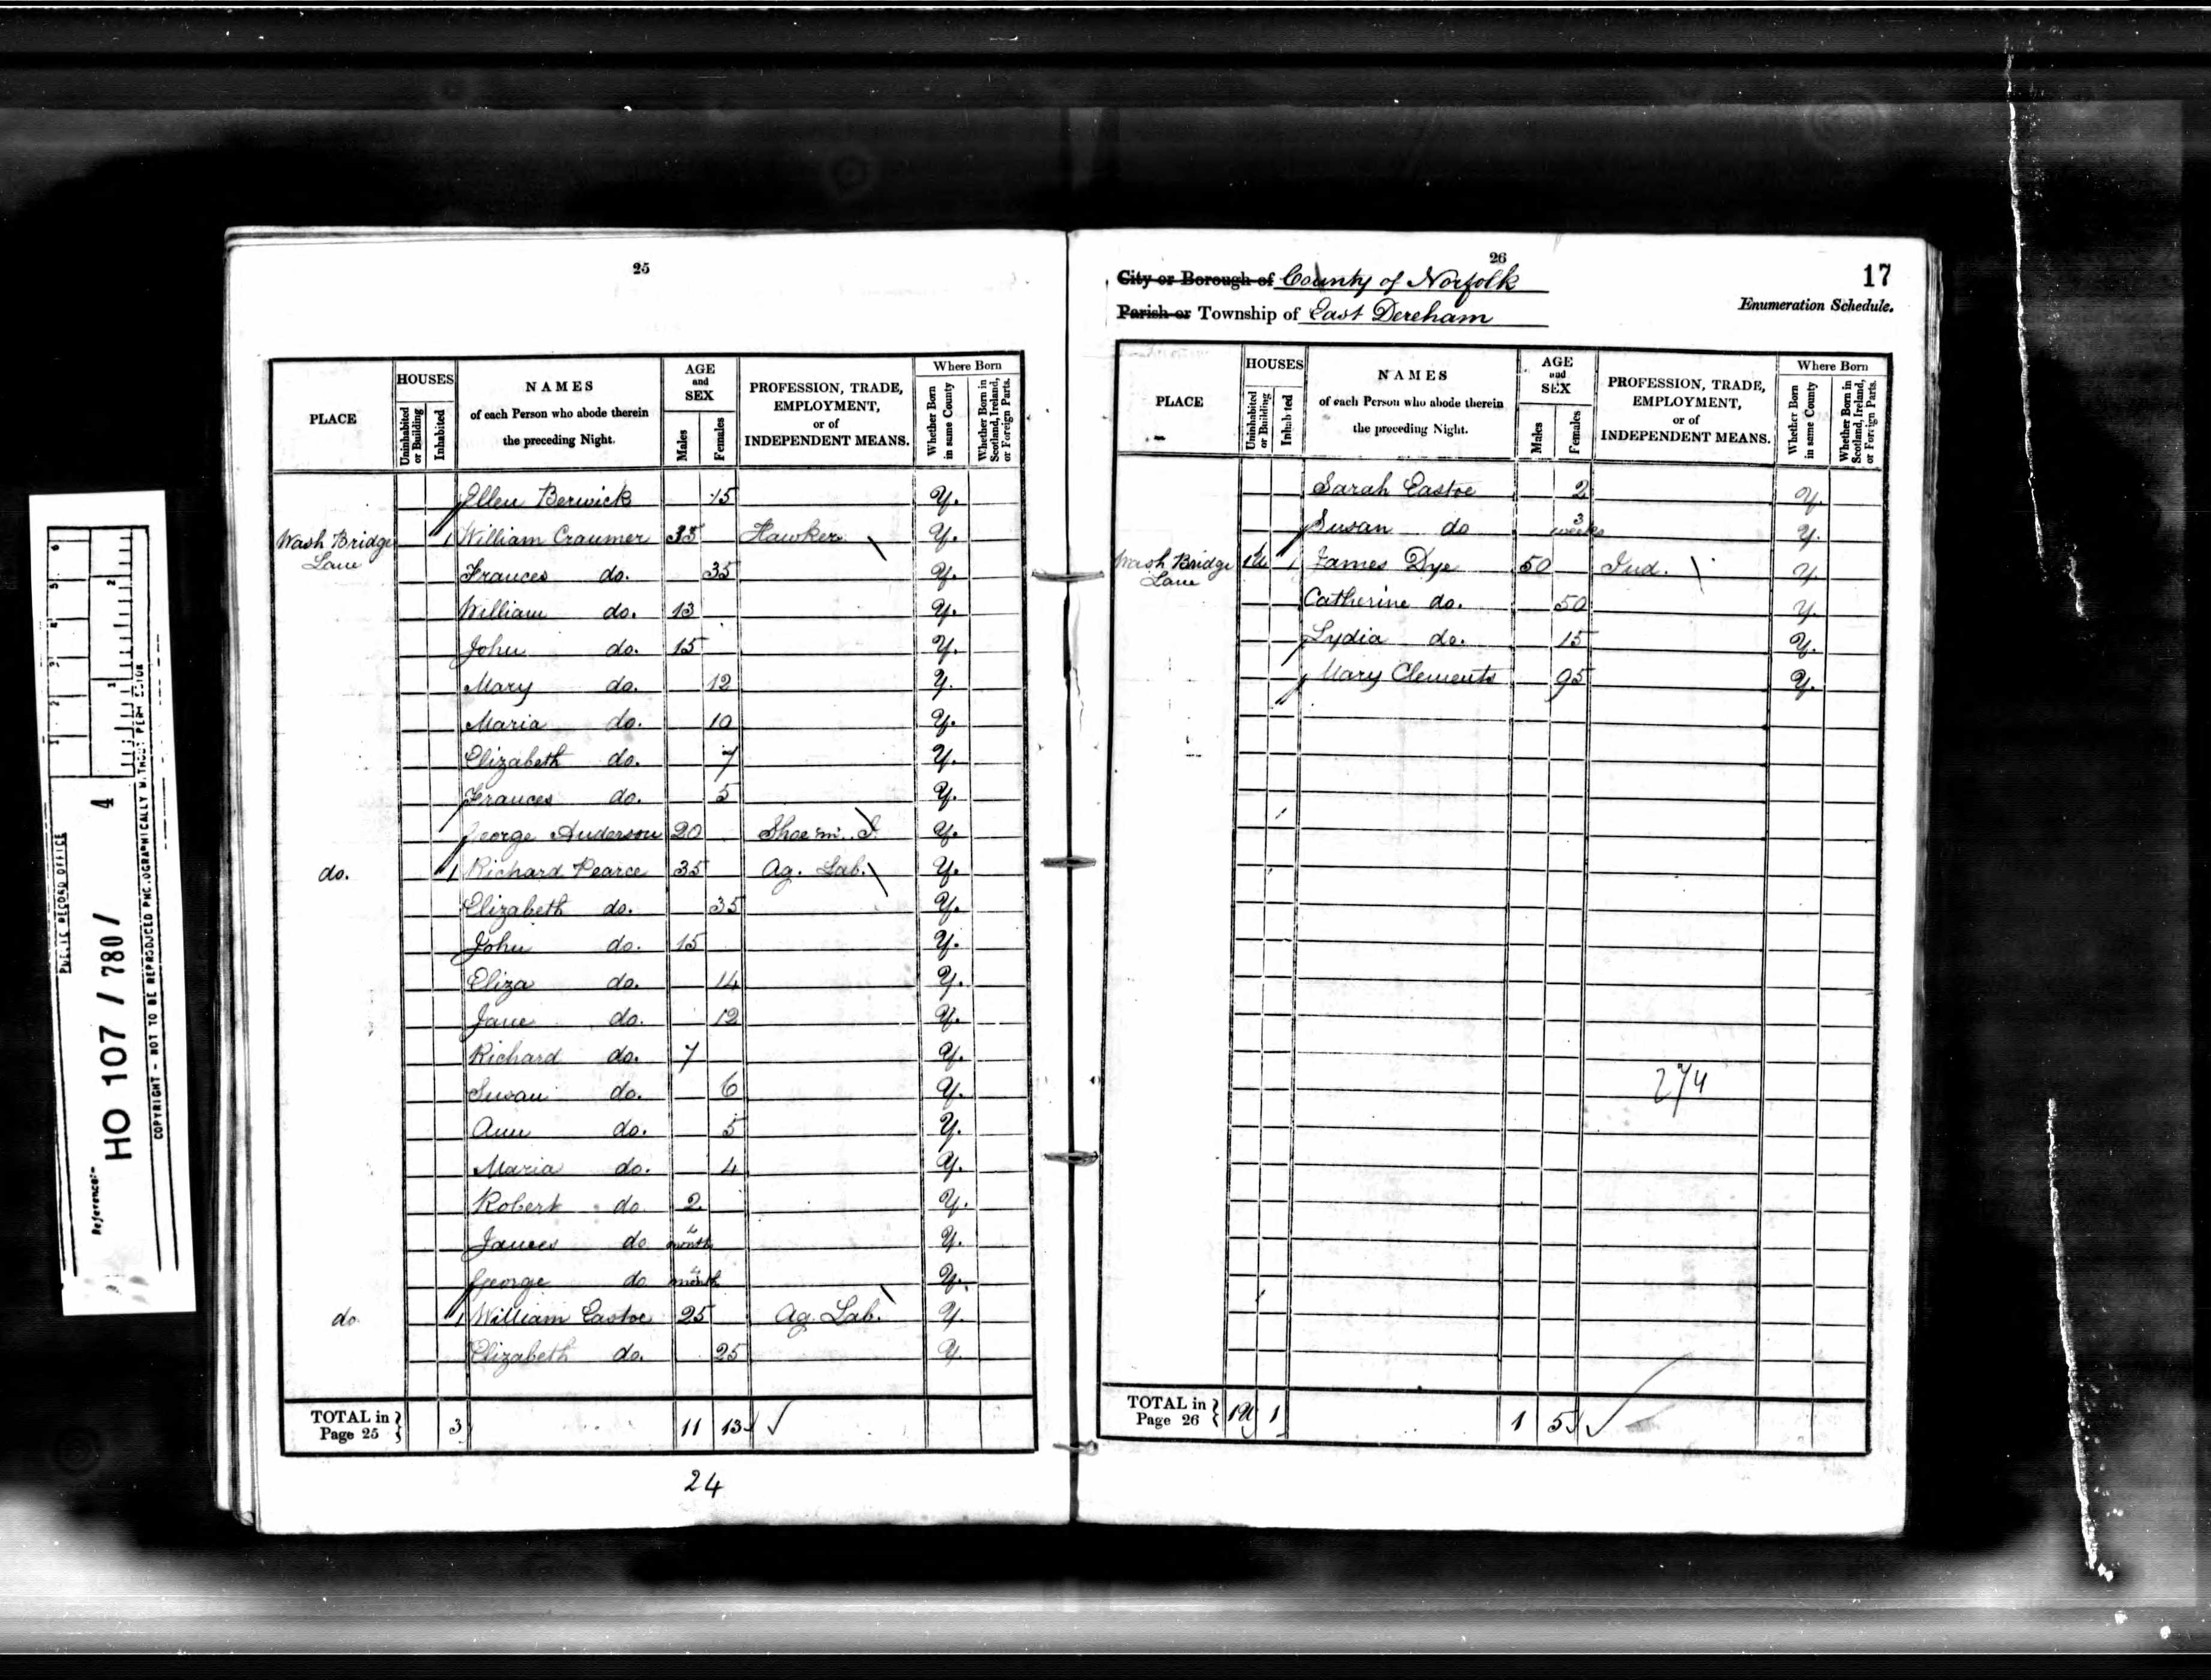 25
PLACE HOUSES Uninhabited or Building Inhabited NAMES of each Person who abode therein the preceding Night. AGE and SEX Males Females PROFESSION, TRADE, EMPLOYMENT, or of INDEPENDENT MEANS. Where Born Whether Born in same County Whether Born in Scotland, Ireland, or Foreign Parts.
Ellen Berwick 15 Y.
Wash Bridge Lane 1 William Craumer 35 Hawker Y.
Frances do. 35 Y.
William do. 13 Y.
John do. 15 Y.
Mary do. 12 Y.
Maria do. 10 Y.
Elizabeth do. 7 Y.
Frances do. 5 Y.
George Anderson 20 Shoe m. J. Y.
do. 1 Richard Pearce 35 Ag. Lab. Y.
Elizabeth do. 35 Y.
John do. 15 Y.
Eliza do. 14 Y.
Jane do. 12 Y.
Richard do. 7 Y.
Susan do. 6 Y.
Ann do. 5 Y.
Maria do. 4 Y.
Robert do. 2 Y.
James do month Y.
George do month Y.
do. 1 William Eastoe 25 Ag. Lab. Y.
Elizabeth do. 25 Y.
TOTAL in Page 25 3 11 13
24
26
17
City or Borough of County of Norfolk
Enumeration Schedule.
Parish or Township of East Dereham
PLACE HOUSES Uninhabited or Building Inhabited NAMES of each Person who abode therein the preceding Night. AGE and SEX Males Females PROFESSION, TRADE, EMPLOYMENT, or of INDEPENDENT MEANS. Where Born Whether Born in same County Whether Born in Scotland, Ireland, or Foreign Parts.
Sarah Eastoe 2 Y.
Susan do 3 weeks Y.
Wash Bridge Lane 1U 1 James Dye 50 Ind. Y.
Catherine do. 50 Y.
Lydia do. 15 Y.
Mary Clements 95 Y.
274
TOTAL in Page 26 1U 1 1 5
PUBLIC RECORD OFFICE
Reference:-
HO 107 / 780 / 4
COPYRIGHT - NOT TO BE REPRODUCED PHOTOGRAPHICALLY WITHOUT PERMISSION